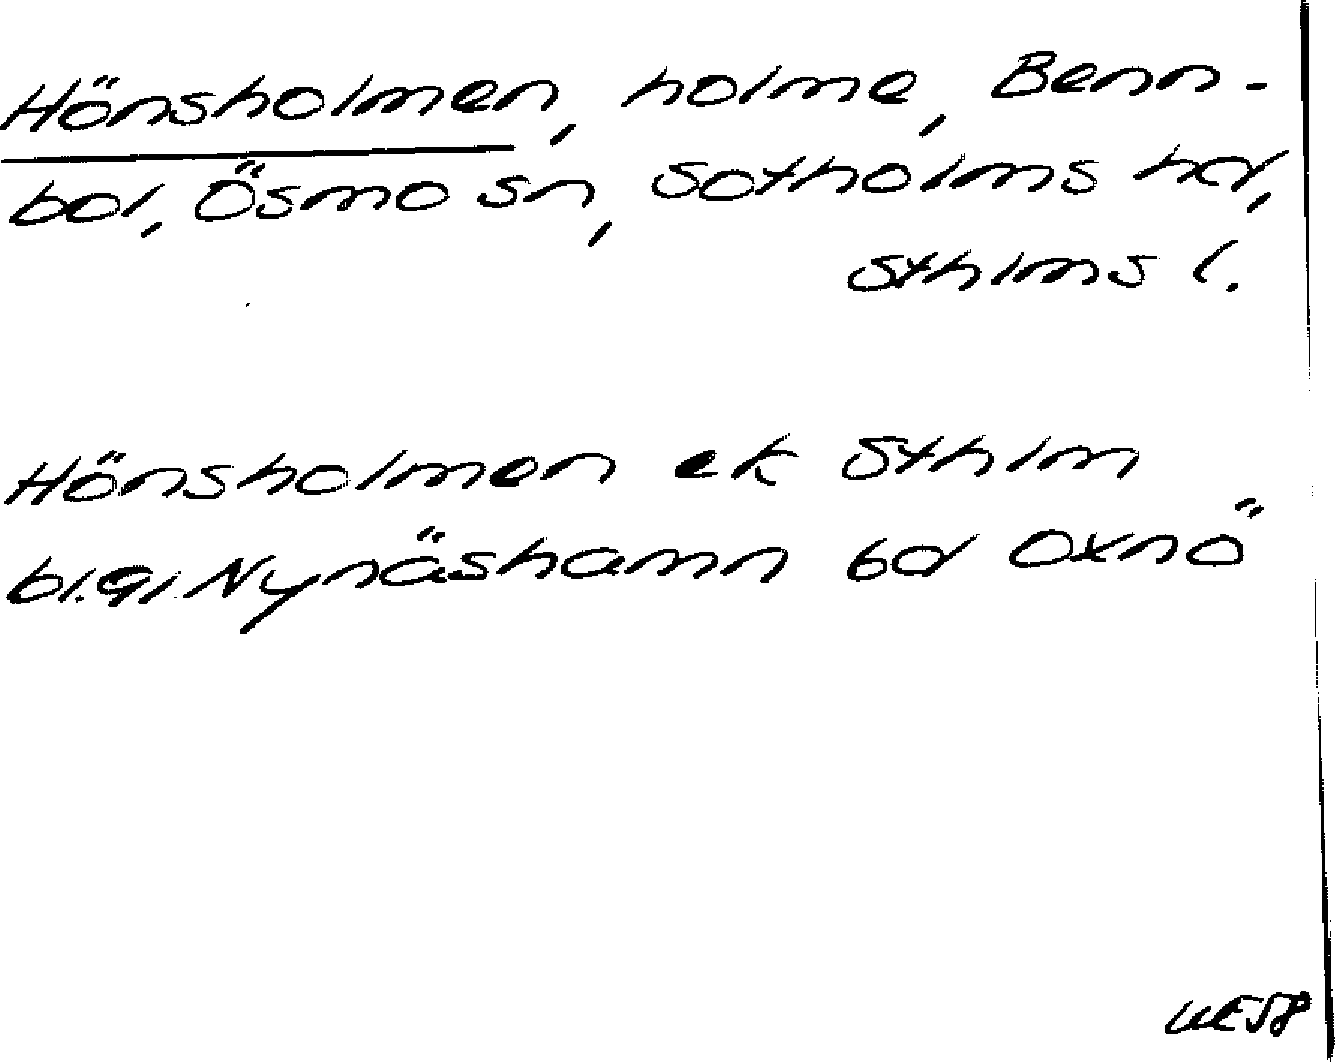 Hönsholmen, holme, Benn-
bol, Ösmo sn, Sotholms hd,
Sthlms l.
Hönsholmen ek Sthlm
bl.91.Nynäshamn bd Oxnö